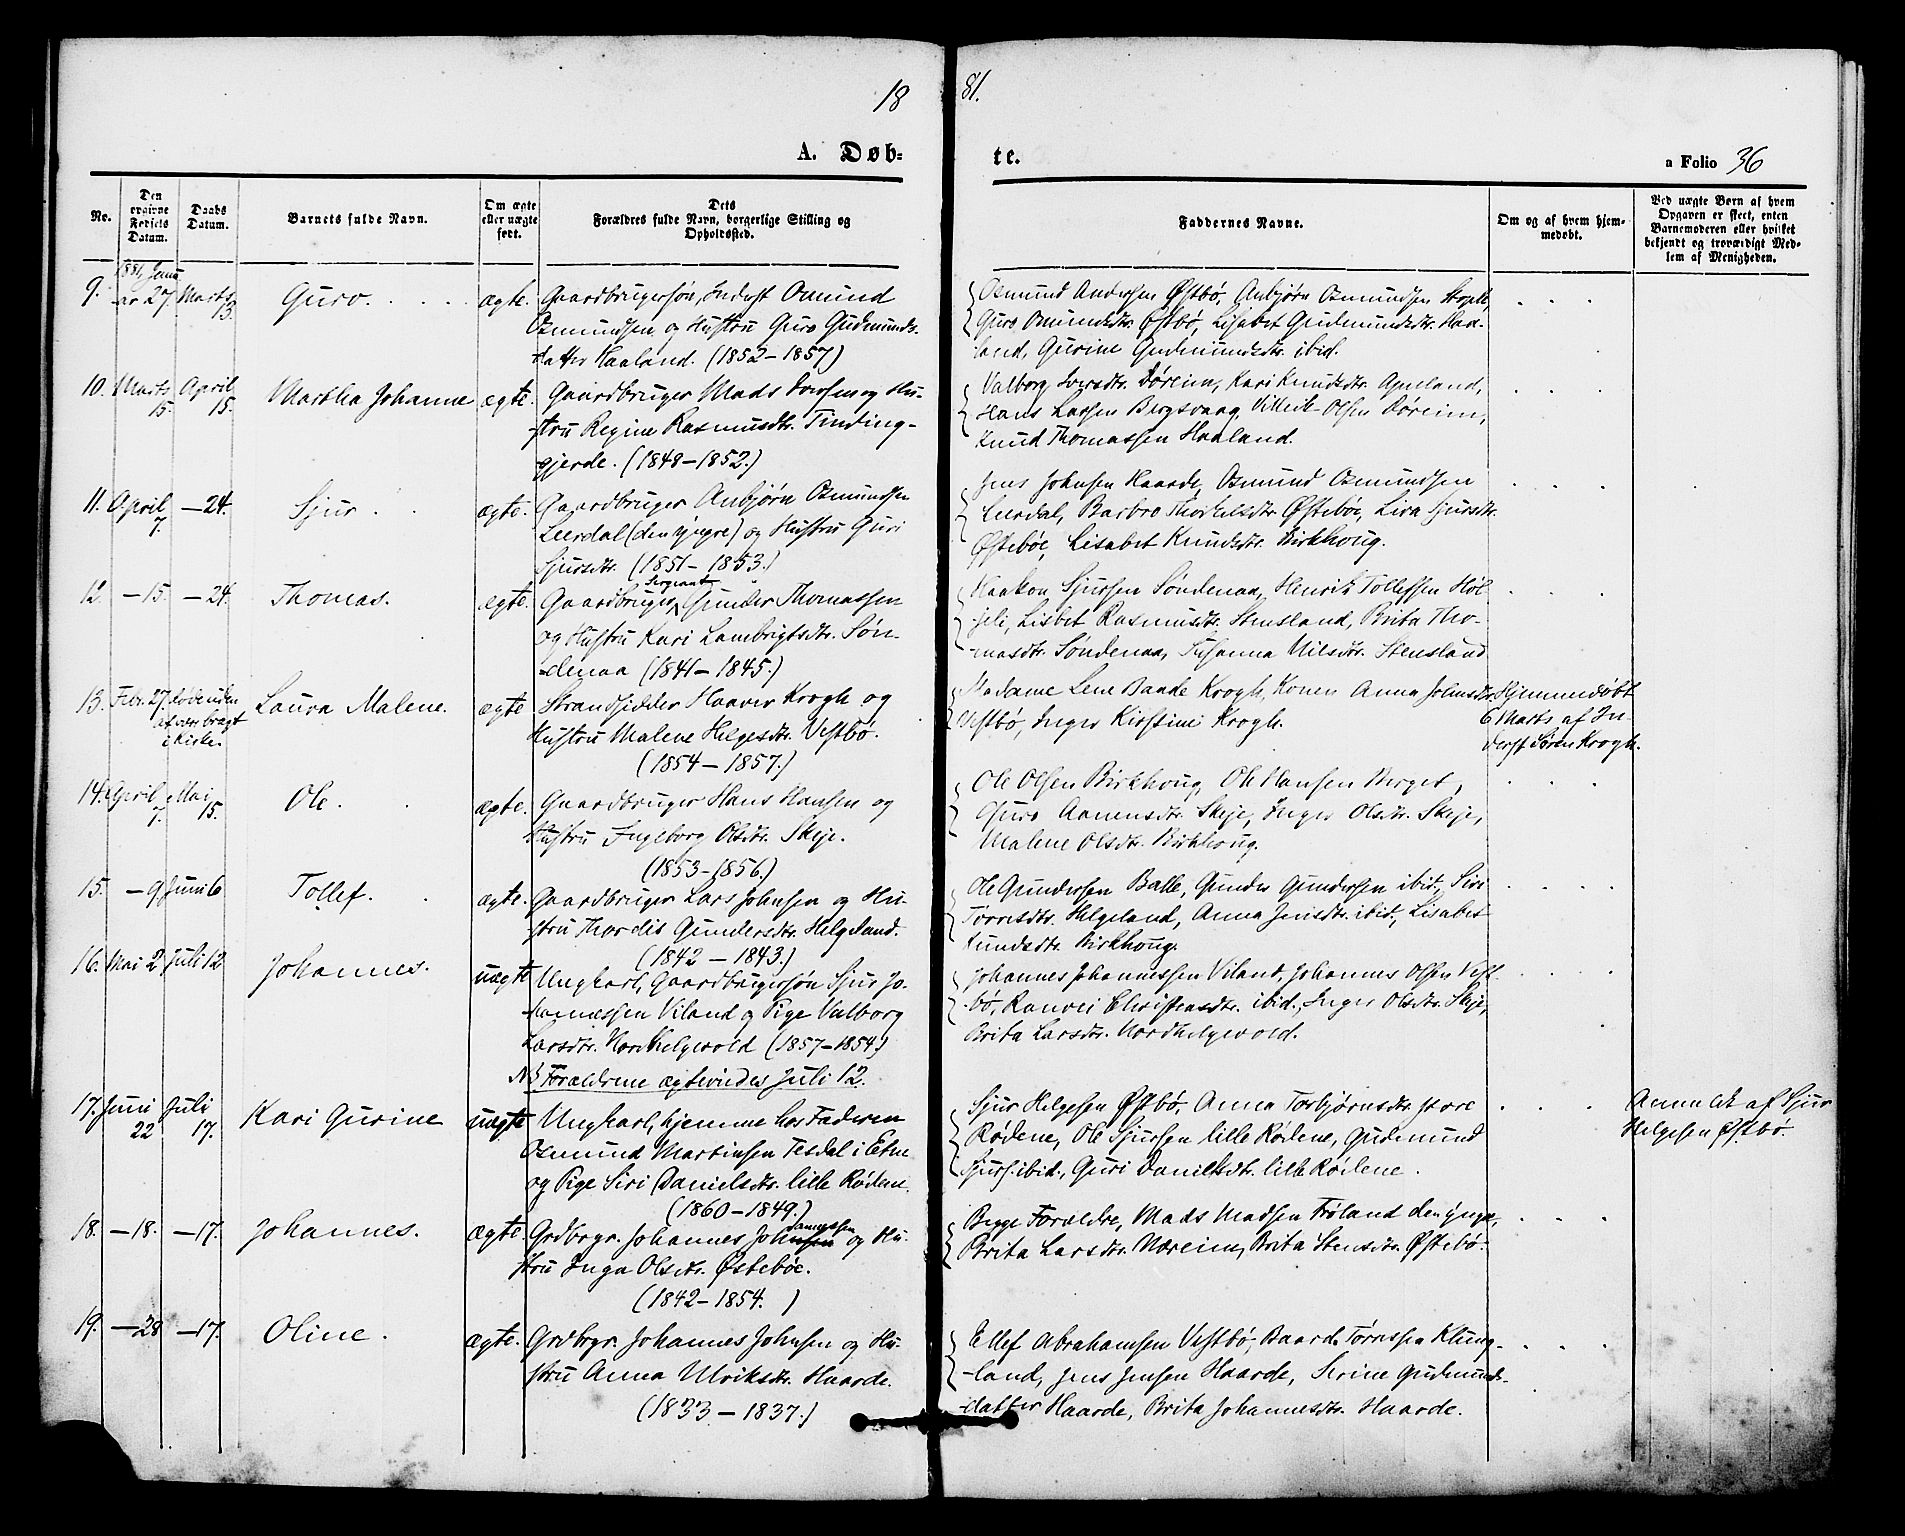 18
81.
A. Døb-
te.
a Folio 36
No.
Den
opgivne
Fødsels
Datum.
Daabs
Datum.
Barnets fulde Navn.
Om ægte
eller uægte
født.
Dets
Forældres fulde Navn, borgerlige Stilling og
Opholdssted.
Faddernes Navne.
Om og af hvem hjem-
medøbt.
Ved uægte Børn af hvem
Opgaven er skeet, enten
Barnemoderen eller hvilket
bekjendt og troværdigt Med-
lem af Menigheden.
9.
1881, Janu
ar 27.
Marts
13.
Guro.
ægte.
Gaardbrugersøn, Inderst Omund
Osmundsen og Hustru Guro Gudmunds-
datter Haaland. (1852-1857)
Osmund Andersen Østbö, Anbjørn Osmundsen
Guro Omundsdtr. Østbö, Lisabet Gudmundsdtr. Haa-
land, Gurine Gudmundsdtr. ibid.
10.
Marts
15.
April
15.
Martha Johanne
ægte.
Gaardbruger Mads Iversen og Hu-
stru Regine Rasmusdtr. Tinding-
gjerde. (1848-1852.)
Valborg Iversdtr. Döreim, Kari Knudsdtr. Apeland,
Hans Larsen Bergsvaag, Villeik Olsen Döreim,
Knud Thomassen Haaland.
11.
April
7.
-24.
Sjur.
ægte.
Gaardbruger Anbjørn Osmundsen
Leerdal (den yngre) og Hustru Guri
Sjursdtr. (1851-1853.)
Jens Johnsen Haarde, Osmund Osmundsen
Leerdal, Barbro Thorkelsdtr. Østeböe, Siva Sjursdtr.
Østeböe, Lisabet Knudsdtr. Birkhoug.
12.
-15.
-24.
Thomas.
ægte.
Sergeant
Gaardbruger Gunder Thomassen
og Hustru Kari Lambrigtsdtr. Søn-
denaa (1841-1845.)
Haakon Sjursen Söndenaa, Henrik Tollefsen Höl-
Lisbet Rasmusdtr. Stensland, Brita Tho-
masdtr. Söndenaa, Susanna Nilsdtr. Stensland
13.
Febr. 27.
Döde uden
at være bragt
i Kirke.
Laura Malene.
ægte
Strandsidder Haaver Krogh og
Hustru Malene Helgesdtr. Vestbö.
(1854-1857.)
Madame Lene Baade Krogh, Konen Anna Johnsdtr.
Vestbö, Inger Kirstine Krogh.
Hjemmedöbt
6 Marts af In-
derst Sören Krogh.
14.
April
7.
Mai
15.
Ole.
ægte.
Gaardbruger Hans Hansen og
Hustru Ingeborg Olsdtr. Skeje.
(1853-1856.)
Ole Olsen Birkhoug, Ole Hansen Berget,
Guro Aanensdtr. Skeje, Inger Olsdtr. Skeje,
Malene Olsdtr. Birkhoug.
15.
-9.
Juni 6
Tollef.
ægte.
Gaardbruger Lars Johnsen og Hu-
stru Thordis Gundersdtr. Helgeland.
(1842-1843.)
Ole Gundersen Balle, Gunder Gundersen ibid., Siri
Tørresdtr. Helgeland, Anna Jensdtr. ibid., Lisabet
Knudsdtr. Birkhoug.
16.
Mai 2
Juli 12
Johannes.
uægte
Ungkarl, Gaardbrugersön Sjur Jo-
hannessen Viland og Pige Valborg
Larsdtr. Nordhelgevold (1857-1854)
NB Forældrene ægteviedes Juli 12.
Johannes Johannessen Viland, Johannes Olsen Vest-
bö, Ranvei Christensdtr. ibid., Inger Olsdtr. Skeje,
Brita Larsdtr. Nordhelgevold.
17.
Juni
22
Juli
17.
Kari Gurine
uægte
Ungkarl, hjemme hos Faderen
Osmund Martinsen Tesdal i Etne
og Pige Siri Danielsdtr. lille Rödene.
(1860-1849.)
Sjur Helgesen Østbö, Anna Torbjørnsdtr. store
Rödene, Ole Sjursen lille Rödene, Gudmund
Sjurs. ibid., Guri Danielsdtr. lille Rödene.
Anmeldt af Sjur
Helgesen Østbö.
18.
-18.
-17.
Johannes.
ægte.
annessen
Grdbrgr. Johannes Johnsen og Hu-
stru Inga Olsdtr. Østeböe.
(1842-1854. )
Begge Forældre, Mads Madsen Fröland den yngre,
Brita Larsdtr. Næreim, Brita Stensdtr. Østebö.
19.
-28
-17.
Oline.
ægte.
Grdbrgr. Johannes Johnsen og Hu-
stru Anna Ulriksdtr. Haarde.
(1833-1837.)
Ellef Abrahamsen Vestbö, Baard Törressen Klung-
land, Jens Jensen Haarde, Serine Gudmunds-
datter Haarde, Brita Johannesdtr. Haarde.